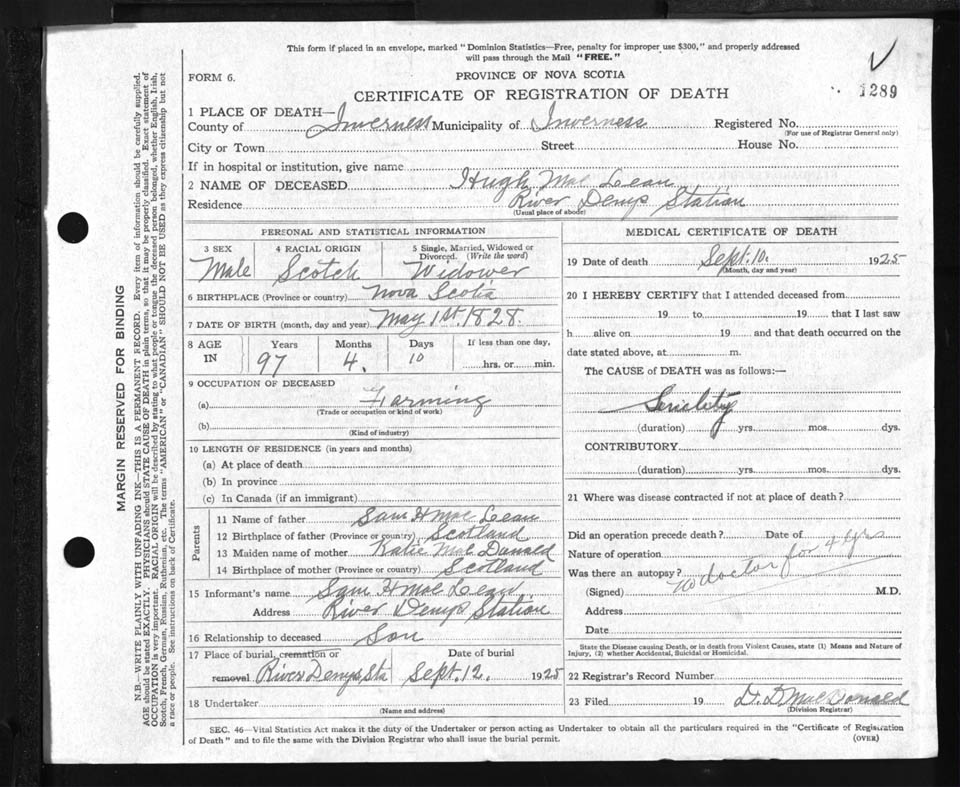 This form if placed in an envelope, marked "Dominion Statistics—Free, penalty for improper use $300," and properly addressed
will pass through the Mail "FREE."
FORM 6.
PROVINCE OF NOVA SCOTIA
CERTIFICATE OF REGISTRATION OF DEATH
1289
1 PLACE OF DEATH—
County of Inverness Municipality of Inverness Registered No.
(For use of Registrar General only)
City or Town Street House No.
If in hospital or institution, give name
2 NAME OF DECEASED Hugh Mac Lean
Residence River Denys Station
(Usual place of abode)
PERSONAL AND STATISTICAL INFORMATION
3 SEX 4 RACIAL ORIGIN 5 Single, Married, Widowed or
Divorced. (Write the word)
Male Scotch Widower
6 BIRTHPLACE (Province or country) Nova Scotia
7 DATE OF BIRTH (month, day and year) May 1st. 1828.
8 AGE IN Years Months Days If less than one day,
97 4. 10 hrs. or min.
9 OCCUPATION OF DECEASED
(a) Farming
(Trade or occupation or kind of work)
(b)
(Kind of industry)
10 LENGTH OF RESIDENCE (in years and months)
(a) At place of death
(b) In province
(c) In Canada (if an immigrant)
Parents
11 Name of father Sam H Mac Lean
12 Birthplace of father (Province or country) Scotland
13 Maiden name of mother Katie Mac Donald
14 Birthplace of mother (Province or country) Scotland
15 Informant's name Sam H Mac Lean
Address River Denys Station
16 Relationship to deceased Son
17 Place of burial, cremation or removal Date of burial
River Denys Sta Sept. 12. 1925
18 Undertaker
(Name and address)
MEDICAL CERTIFICATE OF DEATH
19 Date of death Sept. 10. 1925
(Month, day and year)
20 I HEREBY CERTIFY that I attended deceased from
19 to 19 that I last saw
h alive on 19 and that death occurred on
date stated above, at m.
The CAUSE of DEATH was as follows:—
Senility
(duration) yrs. mos. dys.
CONTRIBUTORY
(duration) yrs. mos. dys.
21 Where was disease contracted if not at place of death?
Did an operation precede death? Date of
Nature of operation
Was there an autopsy? no doctor for 4 yrs
(Signed) M.D.
Address
Date
State the Disease causing Death, or in death from Violent Causes, state (1) Means and Nature of
Injury, (2) whether Accidental, Suicidal or Homicidal.
22 Registrar's Record Number
23 Filed 19 D. D MacDonald
(Division Registrar)
SEC. 46—Vital Statistics Act makes it the duty of the Undertaker or person acting as Undertaker to obtain all the particulars required in the "Certificate of Registration
of Death" and to file the same with the Division Registrar who shall issue the burial permit. (OVER)
MARGIN RESERVED FOR BINDING
N.B.—WRITE PLAINLY WITH UNFADING INK—THIS IS A PERMANENT RECORD. Every item of information should be carefully supplied.
AGE should be stated EXACTLY. PHYSICIANS should STATE CAUSE OF DEATH in plain terms, so that it may be properly classified. Exact statement of
OCCUPATION is very important. RACIAL ORIGIN will be described by stating to what people or tongue the deceased person belonged, whether English, Irish,
Scotch, French, German, Russian, Ruthenian, etc. The terms "AMERICAN" or "CANADIAN" SHOULD NOT BE USED as they express citizenship but not
a race or people. See instructions on back of Certificate.